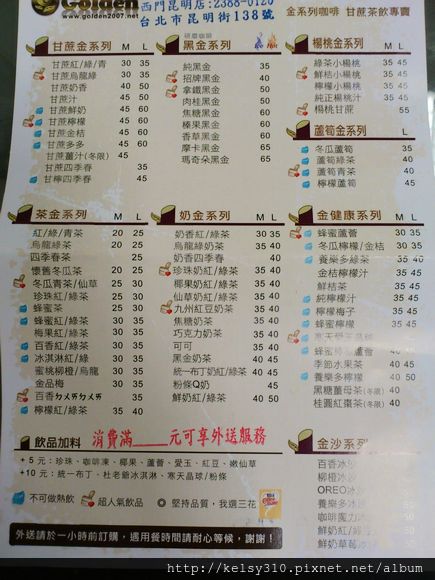 Golden
www.golden2007.net
西門昆明店:2388-0120
台北市昆明街138號
金系列咖啡 甘蔗茶飲專賣
甘蔗金系列 M L
甘蔗紅/綠/青 30 35
甘蔗烏龍綠 30 35
甘蔗奶香 40 50
甘蔗汁 45
甘蔗鮮奶 45
甘蔗檸檬 45
甘蔗金桔 45
甘蔗多多 45
甘蔗薑汁(冬限) 45
甘蔗四季春 35
甘檸四季春 45
研磨咖啡
黑金系列
純黑金 35
招牌黑金
拿鐵黑金
肉桂黑金
焦糖黑金
榛果黑金
香草黑金
摩卡黑金 65
瑪奇朵黑金 65
楊桃金系列 M L
綠茶小楊桃 35 45
鮮桔小楊桃 35 45
檸檬小楊桃 35 45
純正楊桃汁 35 45
楊桃甘蔗 55
蘆筍金系列 L
冬瓜蘆筍 35
蘆筍綠茶 40
蘆筍青茶 40
檸檬蘆筍 45
茶金系列 M L
紅/綠/青茶 20 25
烏龍綠茶 20 25
四季春茶 25
懷舊冬瓜茶 20 25
冬瓜青茶/仙草 25 30
珍珠紅/綠茶 25 30
蜂蜜茶 25 30
蜂蜜紅/綠茶 30 35
梅果紅/綠茶 30 35
百香紅/綠茶 30 35
冰淇淋紅/綠 30 35
蜜桃柳橙/烏龍 30 35
金品梅 30 35
百香ㄉㄨㄞㄉㄨㄞ 35
檸檬紅/綠茶 35 40
奶金系列 M L
奶香紅/綠茶 30 35
烏龍綠奶茶 30 35
奶香四季春 40
珍珠奶紅/綠茶 35 40
椰果奶紅/綠茶 35 40
仙草奶紅/綠茶 35 40
九州紅豆奶茶 35 40
焦糖奶茶 35 40
巧克力奶茶 35 40
可可 35 40
黑金奶茶 40 45
統一布丁奶紅/綠茶 40 50
粉條Q奶 45
鮮奶紅/綠茶 40 50
金健康系列 M L
蜂蜜蘆薈 30 40
冬瓜檸檬/金桔 30 35
養樂多綠茶 30 35
金桔檸檬汁 35 45
鮮桔茶 35 45
純檸檬汁 35 45
檸檬梅子 35 45
蜂蜜檸檬 35 45
寒天愛玉晶球
蜂蜜檸檬蘆薈 40
季節水果茶 40 45
養樂多檸檬 40 50
黑糖薑母茶(冬限) 40
桂圓紅棗茶(冬限) 40
飲品加料
消費滿_____元可享外送服務
+5元:珍珠、咖啡凍、椰果、蘆薈、愛玉、紅豆、嫩仙草
+10元:統一布丁、杜老爺冰淇淋、寒天晶球/粉條
不可做熱飲 超人氣飲品 ◎ 堅持品質,我選三花
金沙系列
百香冰沙
柳橙冰沙
OREO冰沙
養樂多冰沙
咖啡魔力冰沙
鮮奶綠
鮮奶草莓
外送請於一小時前訂購,遇用餐時間請耐心等候,謝謝!
http://kelsy310.pixnet.net/album